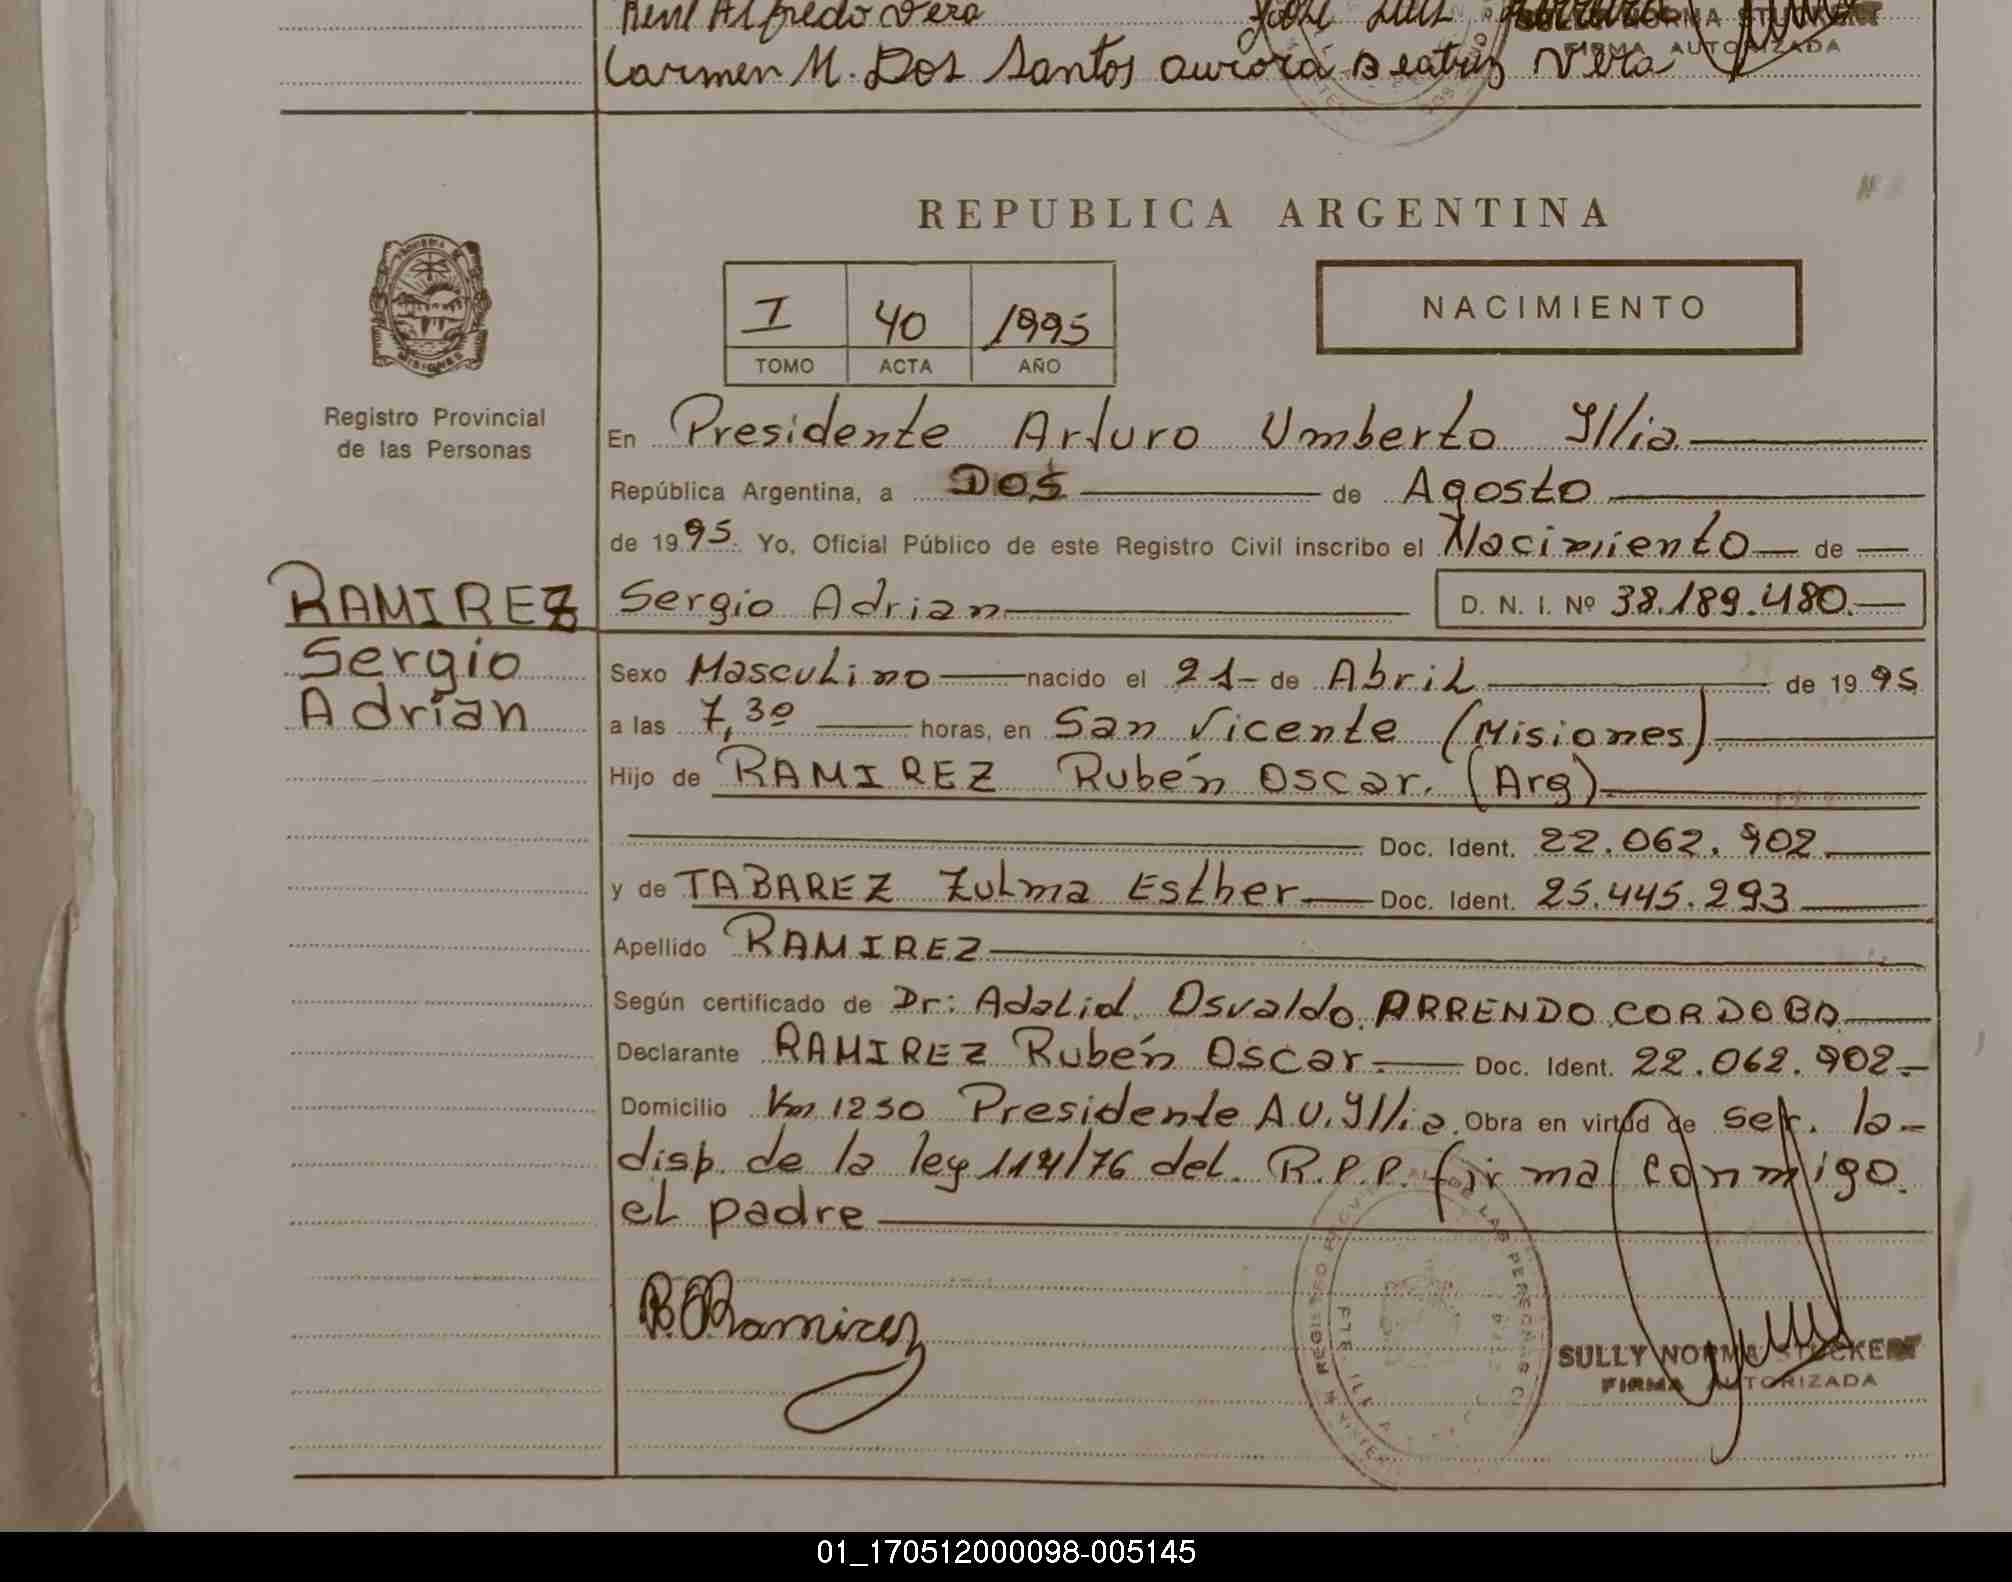 Carmen M. Dos Santos Aurora Beatriz Vera
SULLY NORMA STUCKERT
FIRMA AUTORIZADA
REPUBLICA ARGENTINA
I 40 1995
TOMO ACTA AÑO
NACIMIENTO
Registro Provincial
de las Personas
En Presidente Arturo Umberto Illia
República Argentina, a DOS de Agosto
de 1995. Yo, Oficial Público de este Registro Civil inscribo el Nacimiento de
RAMIREZ
Sergio
Adrian
Sergio Adrian D. N. I. Nº 38.189.480.
Sexo Masculino nacido el 21 de Abril de 1995
a las 7,30 horas, en San Vicente (Misiones)
Hijo de RAMIREZ Rubén Oscar. (Arg)
Doc. Ident. 22.062.902
y de TABAREZ Zulma Esther Doc. Ident. 25.445.293
Apellido RAMIREZ
Según certificado de Dr: Adalid Osvaldo ARRENDO CORDOBA
Declarante RAMIREZ Rubén Oscar. Doc. Ident. 22.062.902
Domicilio Km 1250 Presidente A.U. Illia. Obra en virtud de ser. la
disp. de la ley 114/76 del R.P.P. firma conmigo.
el padre
R. O. Ramirez
SULLY NORMA STUCKERT
FIRMA AUTORIZADA
01_170512000098-005145